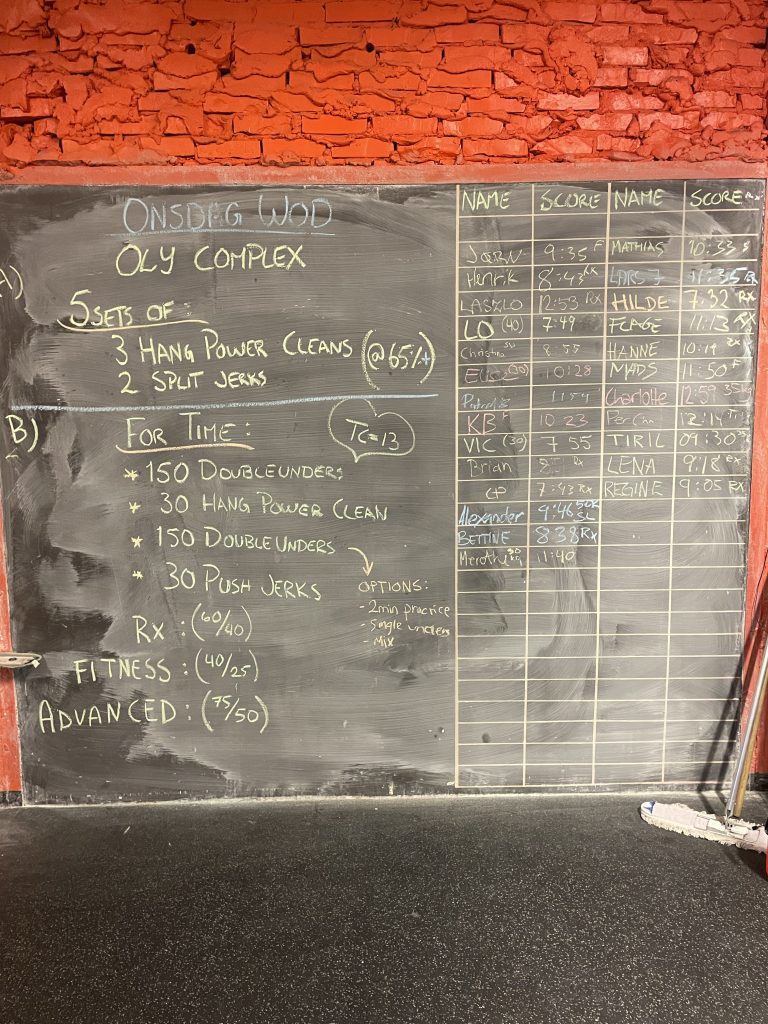 ONSDAG WOD
A)
OLY COMPLEX
5 SETS OF:
3 HANG POWER CLEANS (@ 65%+)
2 SPLIT JERKS
B)
FOR TIME:
TC=13
* 150 DOUBLEUNDERS
* 30 HANG POWER CLEAN
* 150 DOUBLEUNDERS
* 30 PUSH JERKS
OPTIONS:
- 2min practice
- Single unders
- Mix
RX : (60/40)
FITNESS : (40/25)
ADVANCED : (75/50)
NAME SCORE NAME SCORE
JOERN 9:35 F MATHIAS 10:33
Henrik 8:43 RX LARS 11:35
LASZLO 12:53 RX HILDE 7:32 RX
LO (40) 7:49 FLAGE 11:13 RX
Christina 8:55 HANNE 10:19 RX
10:28 MADS 11:50 F
11:54 Charlotte 12:59
KB F 10:23 12:14
VIC (30) 7 55 TIRIL 09:30
Brian RX LENA 9:18 RX
CP 7:43 RX REGINE 9:05 RX
Alexander 9:46
BETTINE 8:38 RX
11:40